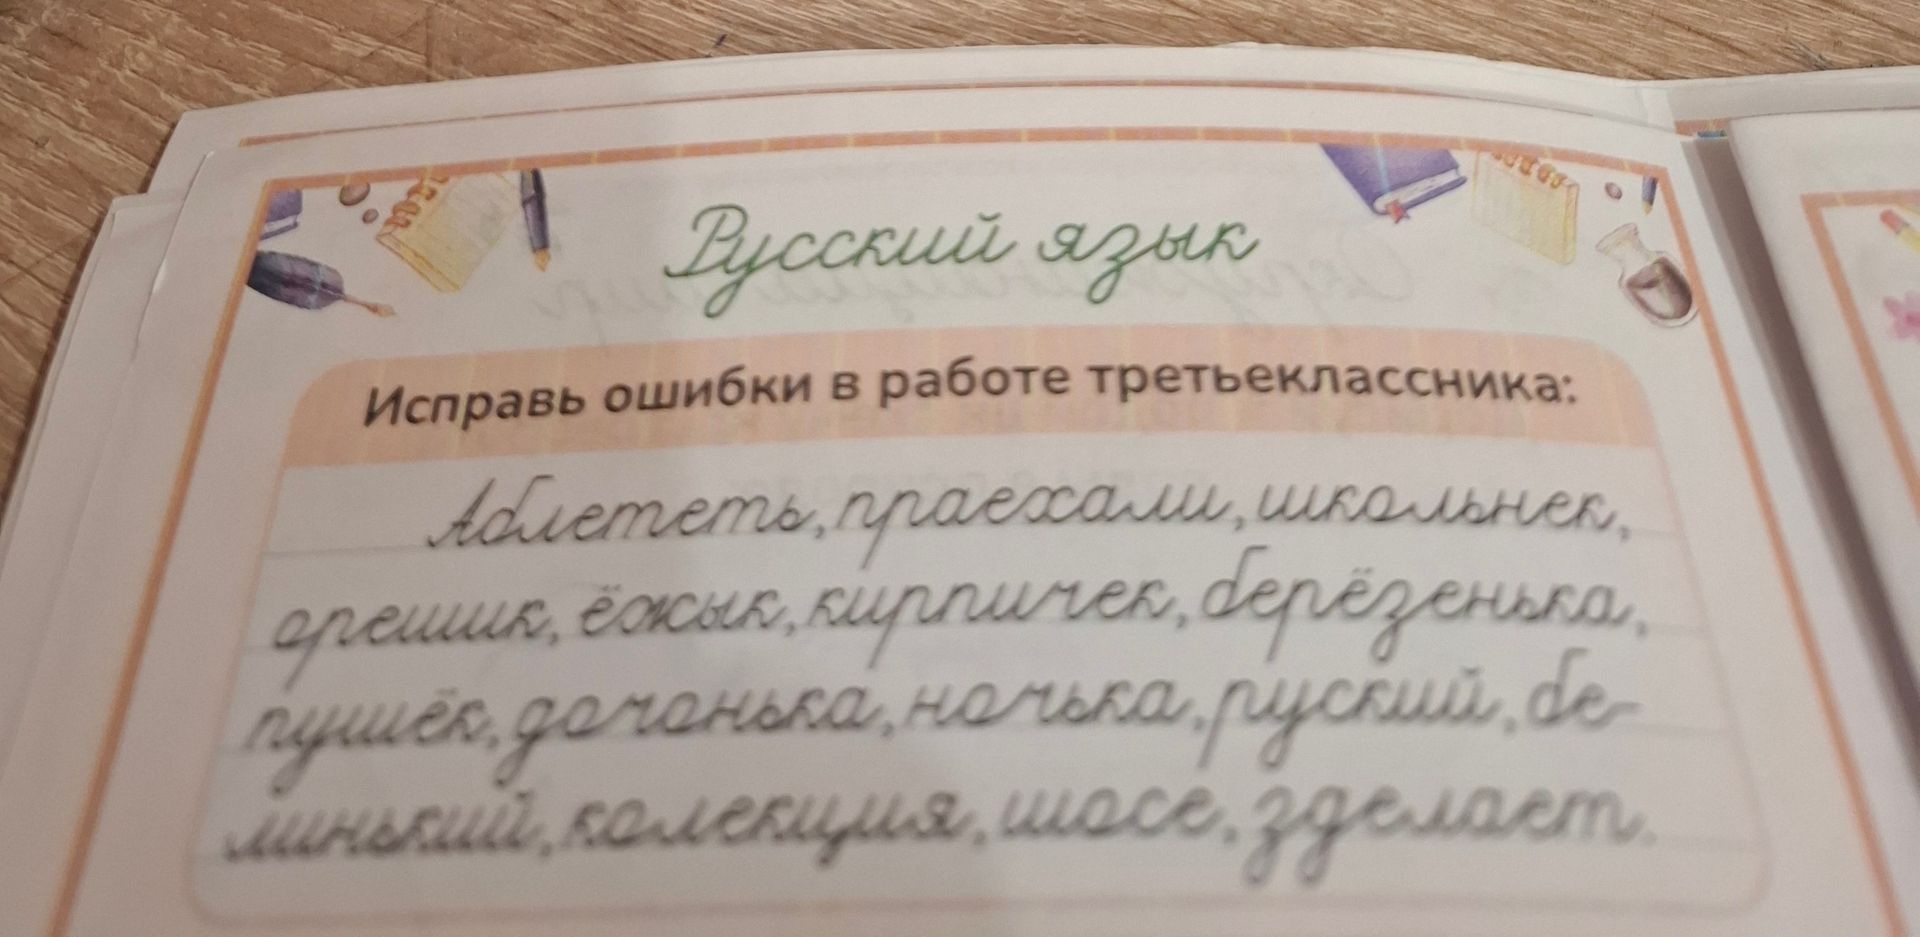 Русский язык
Исправь ошибки в работе третьеклассника:
Аблететь, праехали, школьнек,
орешик, ёжык, кирпичек, берёзенька,
пушёк, дочонька, ночька, руский, бе-
линький, колекция, шосе, зделаем.